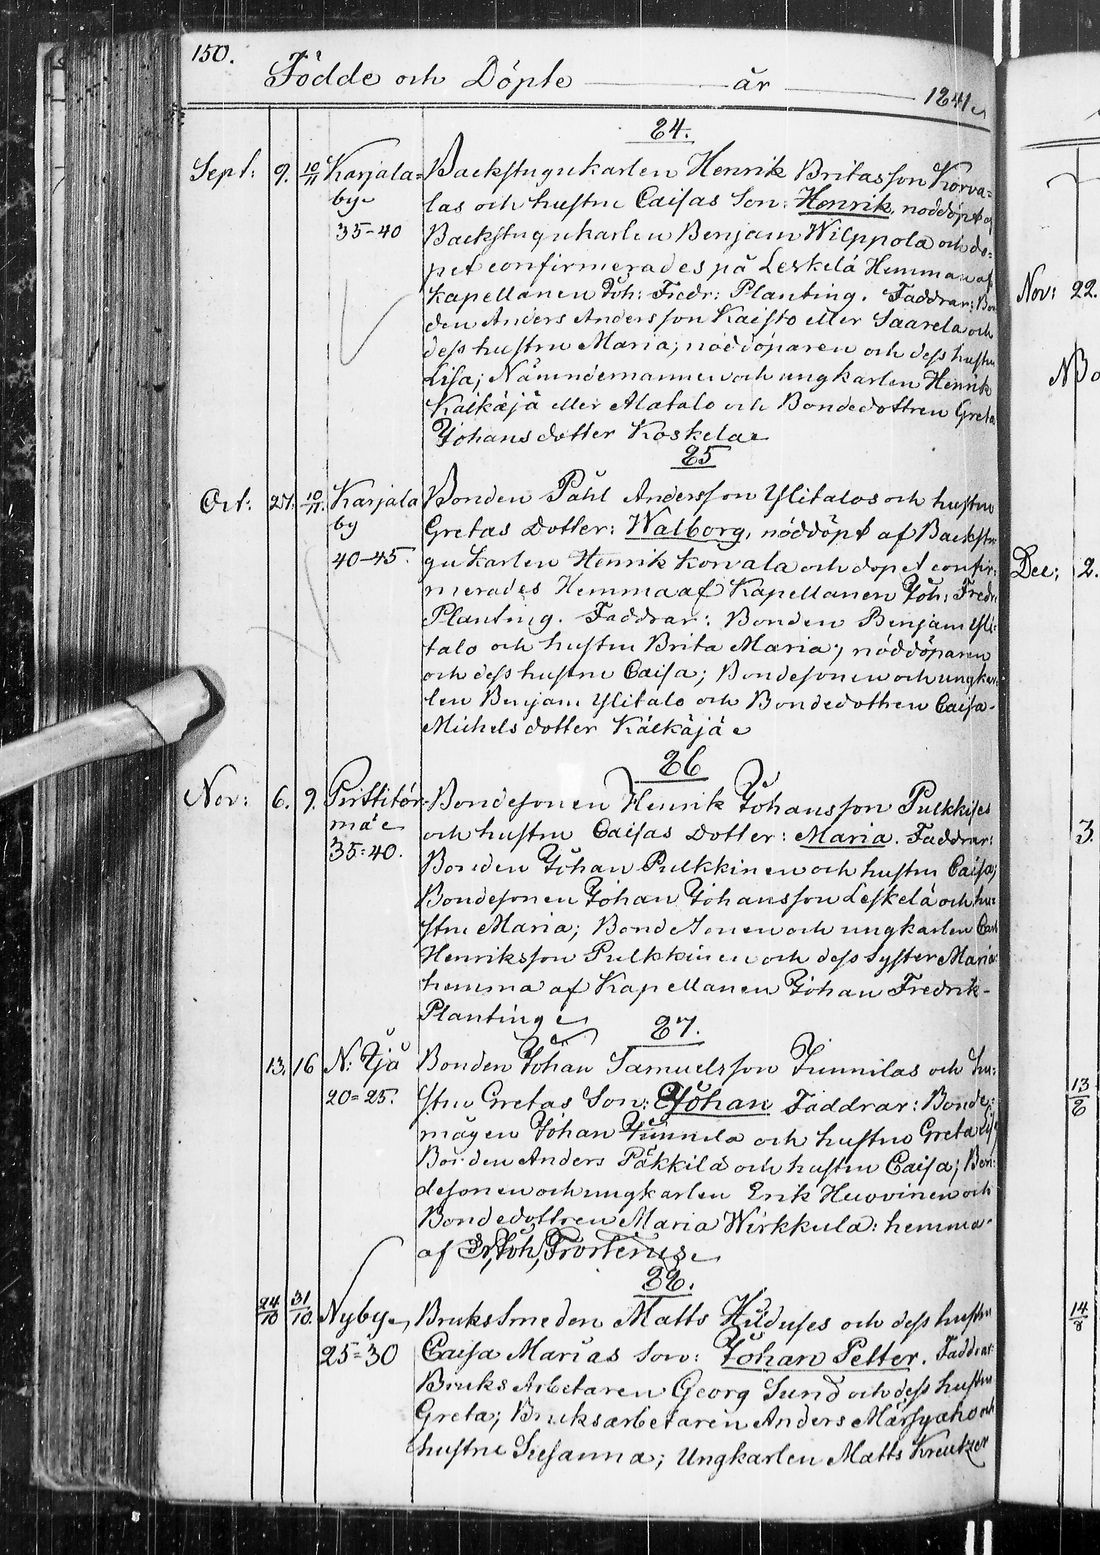 150.
Födde och Döpte år 1841
24.
Sept: 9. 10/11 Karjala= Backstugukarlen Henrik Britasson Korva=
by las och hustru Caisas Son: Henrik, nöddöpt af
35-40 Backstugukarlen Benjam Wilppola och do=
pet confirmerades på Leskelä Hemman af
Kapellanen Joh: Fredr: Planting. Faddrar: Bon
den Anders Andersson Kaisto eller Saarela och
dess hustru Maria; nöddöparen och dess hustru
Lisa; Nämndemannen och ungkarlen Henrik
Kälkäjä eller Alatalo och Bondedottren Greta
Johansdotter Koskela
25
Oct: 27. 10/11. Karjala Bonden Påhl Andersson Ylitalos och hustru
by Gretas Dotter: Walborg, nöddöpt af Backstu
40-45. gukarlen Henrik Korvala och dopet confir=
merades Hemma af Kapellanen Joh: Fredr:
Planting. Faddrar: Bonden Benjam Yli=
talo och hustru Brita Maria; nöddöparen
och dess hustru Caisa; Bondesonen och ungkar
len Benjam Ylitalo och Bondedottren Caisa
Michelsdotter Kälkäjä
26
Nov: 6. 9. Pirttitör= Bondesonen Henrik Johansson Pulkkises
mä och hustru Caisas Dotter: Maria. Faddrar:
35=40. Bonden Johan Pulkkinen och hustru Caisa;
Bondesonen Johan Johansson Leskelä och hu=
stru Maria; BondeSonen och ungkarlen Carl
Henriksson Pulkkinen och dess syster Maria
hemma af Kapellanen Johan Fredrik
Planting
27.
13. 16 N: Ijå Bonden Johan Samuelsson Junnilas och hu=
20=25. stru Gretas Son: Johan Faddrar: Bonde=
mågen Johan Junnila och hustru Greta Lis
Bonden Anders Päkkilä och hustru Caisa; Bon
desonen och ungkarlen Erik Huovinen och
Bondedottren Maria Wirkkula: hemma
af Joh, Frosterus
28.
24/10 31/10. Nyby BruksSmeden Matts och dess hustru
25=30 Caisa Marias Son: Johan Petter. Faddrar:
BruksArbetaren Georg Sund och dess hustru
Greta; Bruksarbetaren Anders och
hustru Susanna; Ungkarlen Matts Kreutzer
Nov: 22.
No
Dec; 2.
3.
13/8
14/8